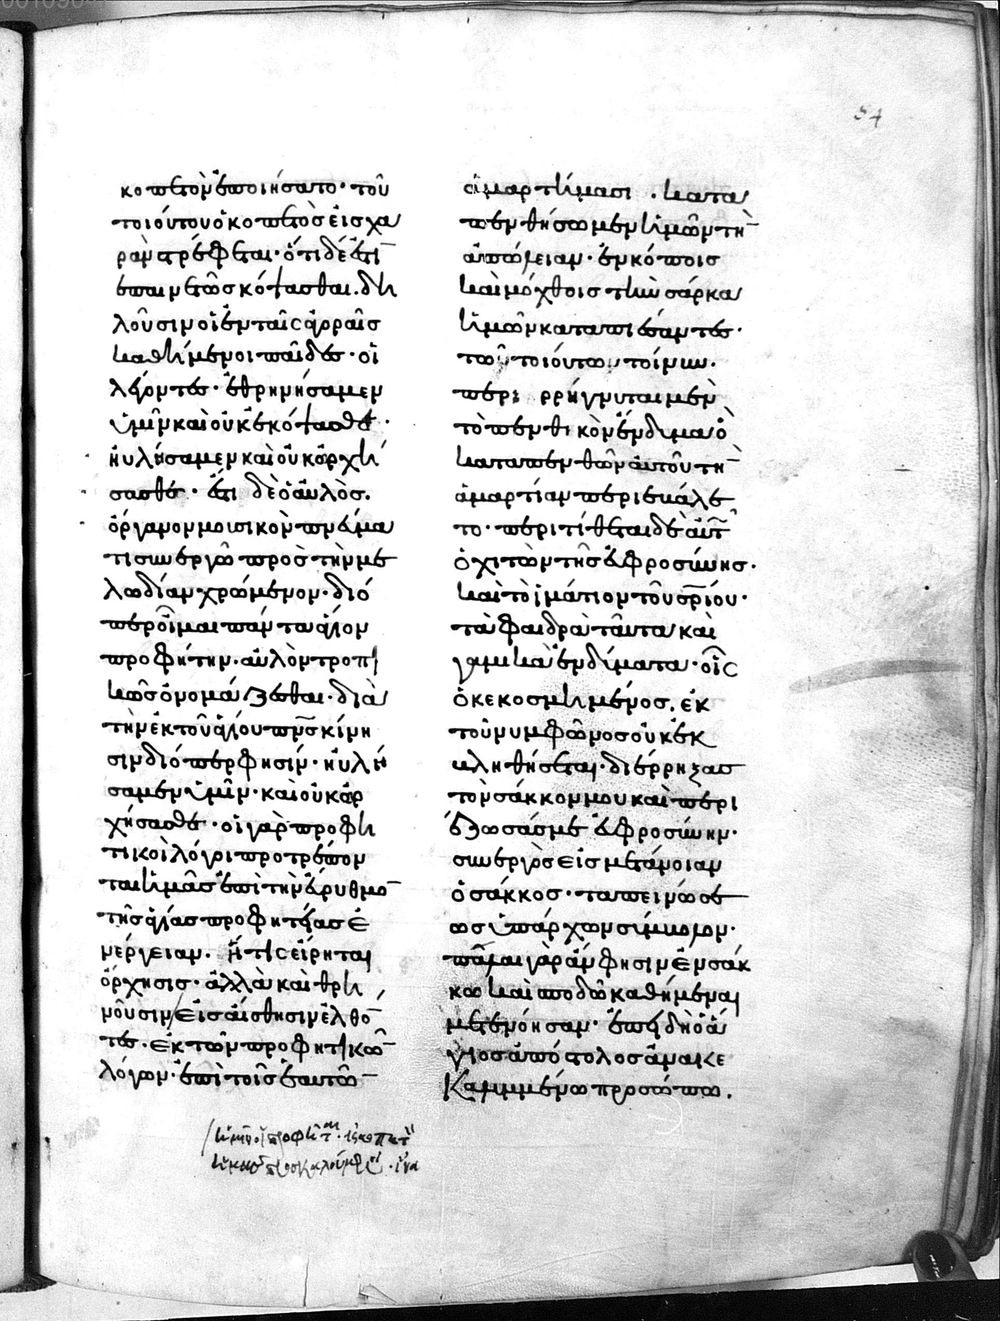 54
κοπετὸν ἐποιήσατο· τοῦ
τοιούτου ὁ κοπετὸς εἰς χα
ρὰν στρέφεται· ὅτι δέ ἐστῖ
ἐπαινετῶς κόψασθαι. δη
λοῦσιν οἱ ἐν ταῖς ἀγοραῖς
καθήμενοι παῖδες· οἱ
λέγοντες· ἐθρηνήσαμεν
ὑμῖν καὶ οὐκ ἐκόψασθε·
ηὐλήσαμεν καὶ οὐκ ὠρχή
σασθε· ἔστι δὲ ὁ αὐλὸς.
ὄργανον μουσικὸν πνεύμα
τι συνεργῶ πρὸς τὴν με
λωδίαν χρώμενον· διό
περ οἶμαι πάντα ἅγιον
προφήτην· αὐλὸν τροπι
κῶς ὀνομάζεσθαι· διὰ
τὴν ἐκ τοῦ ἁγίου πνς κίνη
σιν διόπερ φησίν· ηὐλή
σαμεν ὑμῖν· καὶ οὐκ ὠρ
χήσασθε· οἱ γὰρ προφη
τικοὶ λόγοι προτρέπον
ται ἡμᾶς ἐπὶ τὴν εὔρυθμο
τῆς ἁγίας προφητείας ἐ
νέργειαν. ἥτις εἴρηται
ὄρχησις· ἀλλὰ καὶ θρη
νοῦσιν εἰς αἴσθησιν ἐλθό
τες· ἐκ τῶν προφητικῶ
λόγων· ἐπὶ τοῖς ἑαυτῶ
ἁμαρτήμασι· κατα
πενθήσωμεν ἡμῶν τὴ
ἀπώλειαν· ἐν κόποις
καὶ μόχθοις τὴν σάρκα
ἡμῶν καταπιέσαντες·
τῶν τοιούτων τοίνυν·
περιρρήγνυται μὲν
τὸ πενθικὸν ἔνδυμα ὁ
καταπενθῶν αὐτοῦ τὴ
ἁμαρτίαν περιεβάλε
το· περιτίθεται δὲ αὐτ
ὁ χιτὼν τῆς εὐφροσύνης·
καὶ τὸ ἱμάτιον τοῦ σριου·
τὰ φαιδρὰ ταῦτα καὶ
γαμικὰ ἐνδύματα· οἷς
ὁ κεκοσμημένος. ἐκ
τοῦ νυμφῶνος οὐκ ἐκ
βληθήσεται· διέρρηξας
τὸν σάκκον μου καὶ περι
έζωσάς με εὐφροσύνην·
συνεργὸς εἰς μετάνοιαν
ὁ σάκκος· ταπεινώσε
ως ὑπάρχων σύμβολον·
πάλαι γὰρ ἄν φησιν ἐν σάκ
κω καὶ σποδῶ καθήμεναι
μετενόησαν· ἐπειδὴ ὁ ἅ
γιος ἀπόστολος ἀνακε
καλυμμένω προσώπω.